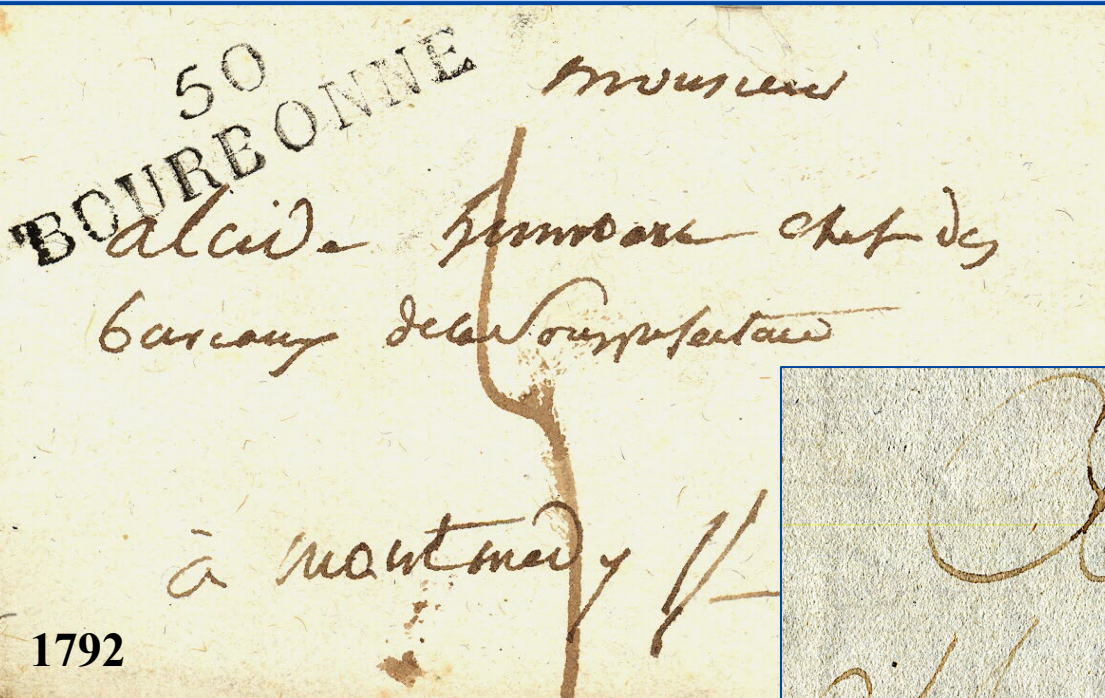 50
BOURBONNE
Monsieur
alcide chef des
bureaux de la Sousprefecture
à Montmedy
1792